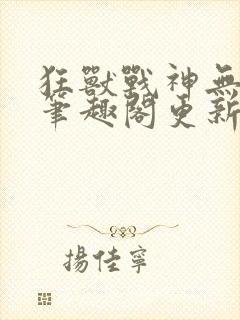 狂獸戰神無
筆趣閣更新
揚佳寧